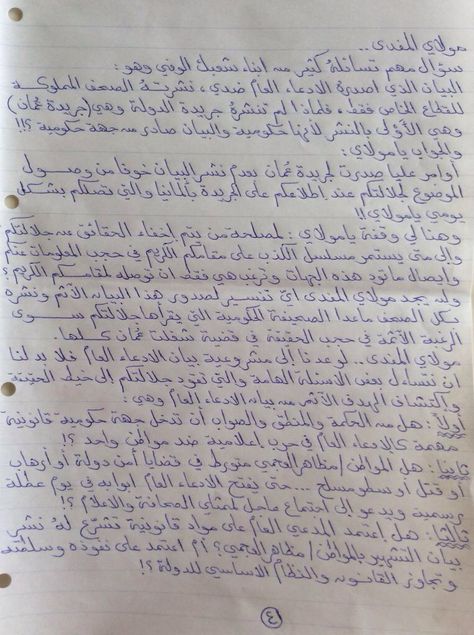 مولاي المفدى ..
سؤال مهم تسائله كثير من أبناء شعبك الوفي وهو :
البيان الذي أصدرة الادعاء العام ضدي ، نشرتة الصحف المملوكة
للقطاع الخاص فقط ، فلماذا لم تنشرة جريدة الدولة وهي (جريدة عُمان)
وهي الأولى بالنشر لأنها حكومية والبيان صادر من جهة حكومية ؟!!
والجواب يامولاي :
أوامر عليا صدرت لجريدة عُمان بعدم نشر البيان خوفا من وصول
الموضوع لجلالتكم عند اطلاعكم على الجريدة بألمانيا والتي تصلكم بشكل
يومي يامولاي !!
وهنا لي وقفة يامولاي : لمصلحة من يتم إخفاء الحقائق عن جلالتكم
وإلى متى يستمر مسلسل الكذب على مقامكم الكريم في حجب المعلومات عنكم
وإيصال ماتود هذه الجهات وترغب هي فقط ان توصله لمقامكم الكريم ؟
ولن يجد مولاي المفدى أي تفسير لصدور هذا البيان الآثم ونشره
بكل الصحف ماعدا الصحيفة الحكومية التي يقرأها جلالتكم سوى
الرغبة الآثمة في حجب الحقيقة في قضية شغلت عُمان كلها .
مولاي المفدى .. لو عدنا إلى مشروعية بيان الادعاء العام فلا بد لنا
ان نتساءل بعض الاسئلة الهامة والتي تقود جلالتكم إلى خيط الحقيقة
وإكتشاف الهدف الآثم من بيان الادعاء العام وهي :
أولاً : هل من الحكمة والمنطق والصواب أن تدخل جهة حكومية قانونية
مهمة كالادعاء العام في حرب إعلامية ضد مواطن واحد ؟!
ثانيا : هل المواطن / مظاهر العجمي متورط في قضايا أمن دولة أو أرهاب
او قتل أو سطو مسلح .. حتى يفتح الادعاء العام ابوابه في يوم عطلة
رسمية ويدعو إلى اجتماع عاجل لممثلي الصحافة والاعلام ؟!
ثالثا : هل اعتمد المدعي العام على مواد قانونية تشرّع له نشر
بيان التشهير بالمواطن / مظاهر العجمي ؟ أم اعتمد على نفوذه وسلطته
وتجاوز القانون والنظام الاساسي للدولة ؟!
٤